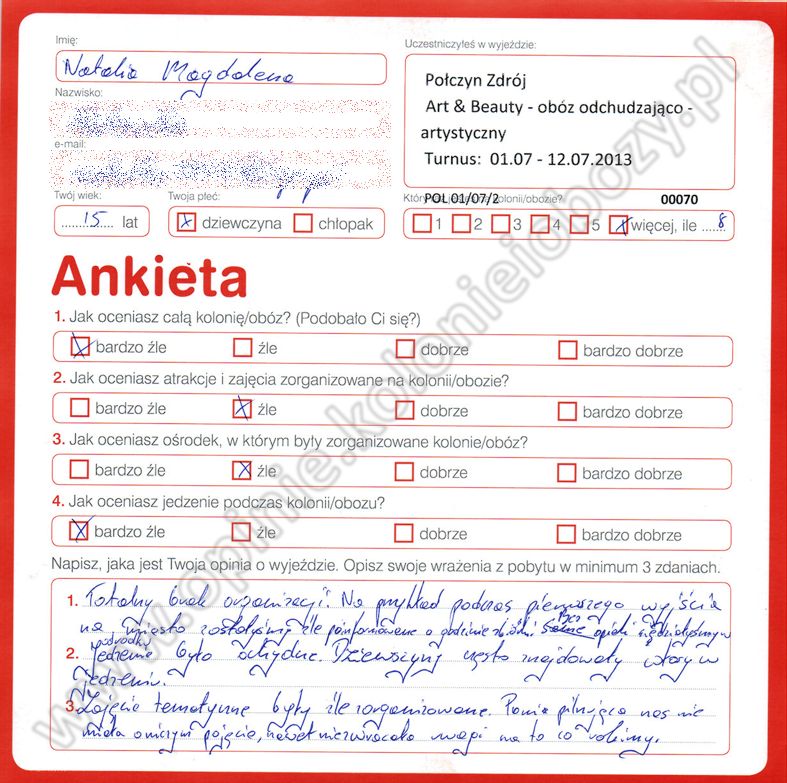 Imię:
Natalia Magdalena
Uczestniczyłeś w wyjeździe:
Połczyn Zdrój
Art & Beauty - obóz odchudzająco -
artystyczny
Turnus: 01.07 - 12.07.2013
Nazwisko:
e-mail:
Twój wiek:
15 lat
Twoja płeć:
dziewczyna chłopak
POL 01/07/2 00070
1 2 3 4 5 więcej, ile 8
Ankieta
1. Jak oceniasz całą kolonię/obóz? (Podobało Ci się?)
bardzo źle źle dobrze bardzo dobrze
2. Jak oceniasz atrakcje i zajęcia zorganizowane na kolonii/obozie?
bardzo źle źle dobrze bardzo dobrze
3. Jak oceniasz ośrodek, w którym były zorganizowane kolonie/obóz?
bardzo źle źle dobrze bardzo dobrze
4. Jak oceniasz jedzenie podczas kolonii/obozu?
bardzo źle źle dobrze bardzo dobrze
Napisz, jaka jest Twoja opinia o wyjeździe. Opisz swoje wrażenia z pobytu w minimum 3 zdaniach.
1. Totalny brak organizacji. Na przykład podczas pierwszego wyjścia
na miasto zostałyśmy źle poinformowane o godzinie zbiórki bez opieki
2. jedzenie było ochydne. Dziewczyny często znajdowały włosy w
jedzeniu.
3. Zajęcia tematyczne były źle zorganizowane. Pania pilnująca nas nie
miała o niczym pojęcia, nawet nie zwracała uwagi na to co robimy.
www.opinie.kolonieiobozy.pl